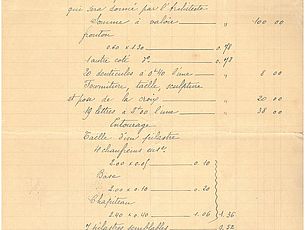 qui sera donné par l'Architecte
Somme à valoir " 100 00
fronton
0.60 x 1.30 0.78
1 autre coté d° 0.78
20 denticules à 0.40 l'une " 8 00
Fourniture, taille, sculpture
et pose de la croix " 20 00
19 lettres à 2.00 l'une " 38 00
Entourage
Taille d'un pilastre
4 chanfreins ens.
2.00 x 0.05 0.10
Base
2.00 x 0.10 0.20
Chapiteau
2.40 x 0.40 1.06 1.36
7 pilastres semblables 9.52